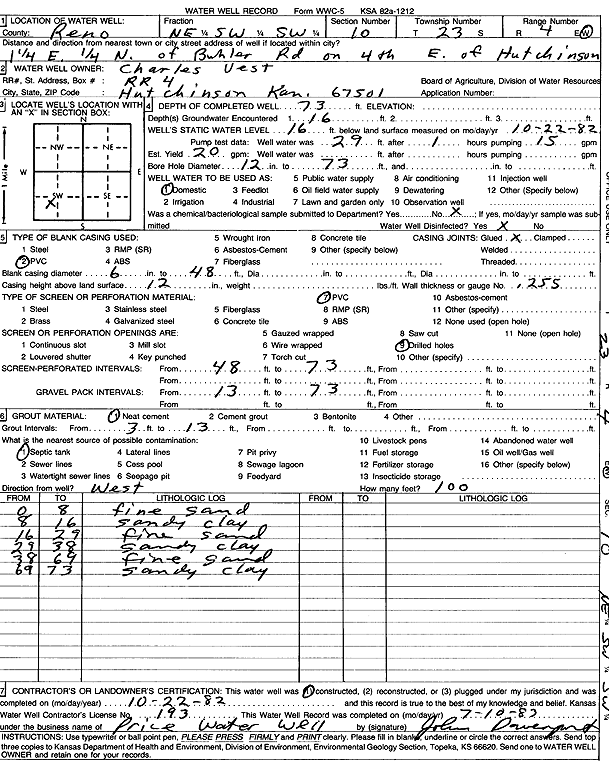 WATER WELL RECORD Form WWC-5 KSA 82a-1212
1 LOCATION OF WATER WELL: Fraction Section Number Township Number Range Number
County: Reno NE ¼ SW ¼ SW ¼ 10 T 23 S R 4 E/W
Distance and direction from nearest town or city street address of well if located within city?
1 1/4 E. 1/4 N. of Buhler Rd on 4th E. of Hutchinson
2 WATER WELL OWNER: Charles Vest
RR#, St. Address, Box # : RR 4 Board of Agriculture, Division of Water Resources
City, State, ZIP Code : Hutchinson Kan. 67501 Application Number:
3 LOCATE WELL'S LOCATION WITH AN "X" IN SECTION BOX:
N
NW NE
W E
SW SE
X
S
1 Mile
4 DEPTH OF COMPLETED WELL 73 ft. ELEVATION:
Depth(s) Groundwater Encountered 1. 16 ft. 2. ft. 3. ft.
WELL'S STATIC WATER LEVEL 16 ft. below land surface measured on mo/day/yr 10-22-82
Pump test data: Well water was 29 ft. after 1 hours pumping 15 gpm
Est. Yield 20 gpm: Well water was ft. after hours pumping gpm
Bore Hole Diameter 12 in. to 73 ft., and in. to ft.
WELL WATER TO BE USED AS: 5 Public water supply 8 Air conditioning 11 Injection well
1 Domestic 3 Feedlot 6 Oil field water supply 9 Dewatering 12 Other (Specify below)
2 Irrigation 4 Industrial 7 Lawn and garden only 10 Observation well
Was a chemical/bacteriological sample submitted to Department? Yes No X ; If yes, mo/day/yr sample was submitted Water Well Disinfected? Yes X No
5 TYPE OF BLANK CASING USED: 5 Wrought iron 8 Concrete tile CASING JOINTS: Glued X Clamped
1 Steel 3 RMP (SR) 6 Asbestos-Cement 9 Other (specify below) Welded
2 PVC 4 ABS 7 Fiberglass Threaded
Blank casing diameter 6 in. to 48 ft., Dia in. to ft., Dia in. to ft.
Casing height above land surface 12 in., weight lbs./ft. Wall thickness or gauge No. .255
TYPE OF SCREEN OR PERFORATION MATERIAL: 7 PVC 10 Asbestos-cement
1 Steel 3 Stainless steel 5 Fiberglass 8 RMP (SR) 11 Other (specify)
2 Brass 4 Galvanized steel 6 Concrete tile 9 ABS 12 None used (open hole)
SCREEN OR PERFORATION OPENINGS ARE: 5 Gauzed wrapped 8 Saw cut 11 None (open hole)
1 Continuous slot 3 Mill slot 6 Wire wrapped 9 Drilled holes
2 Louvered shutter 4 Key punched 7 Torch cut 10 Other (specify)
SCREEN-PERFORATED INTERVALS: From 48 ft. to 73 ft., From ft. to ft.
From ft. to ft., From ft. to ft.
GRAVEL PACK INTERVALS: From 13 ft. to 73 ft., From ft. to ft.
From ft. to ft., From ft. to ft.
6 GROUT MATERIAL: 1 Neat cement 2 Cement grout 3 Bentonite 4 Other
Grout Intervals: From 3 ft. to 13 ft., From ft. to ft., From ft. to ft.
What is the nearest source of possible contamination: 10 Livestock pens 14 Abandoned water well
1 Septic tank 4 Lateral lines 7 Pit privy 11 Fuel storage 15 Oil well/Gas well
2 Sewer lines 5 Cess pool 8 Sewage lagoon 12 Fertilizer storage 16 Other (specify below)
3 Watertight sewer lines 6 Seepage pit 9 Feedyard 13 Insecticide storage
Direction from well? West How many feet? 100
FROM TO LITHOLOGIC LOG FROM TO LITHOLOGIC LOG
0 8 fine sand
8 16 sandy clay
16 29 fine sand
29 38 sandy clay
38 69 fine sand
69 73 sandy clay
7 CONTRACTOR'S OR LANDOWNER'S CERTIFICATION: This water well was (1) constructed, (2) reconstructed, or (3) plugged under my jurisdiction and was
completed on (mo/day/year) 10-22-82 and this record is true to the best of my knowledge and belief. Kansas
Water Well Contractor's License No. 193 This Water Well Record was completed on (mo/day/yr) 7-10-83
under the business name of Price Water Well by (signature) John Davenport
INSTRUCTIONS: Use typewriter or ball point pen, PLEASE PRESS FIRMLY and PRINT clearly. Please fill in blanks, underline or circle the correct answers. Send top
three copies to Kansas Department of Health and Environment, Division of Environment, Environmental Geology Section, Topeka, KS 66620. Send one to WATER WELL
OWNER and retain one for your records.
OFFICE USE ONLY
T 23
R 4
E/W
SEC. 10
NE ¼ SW ¼ SW ¼